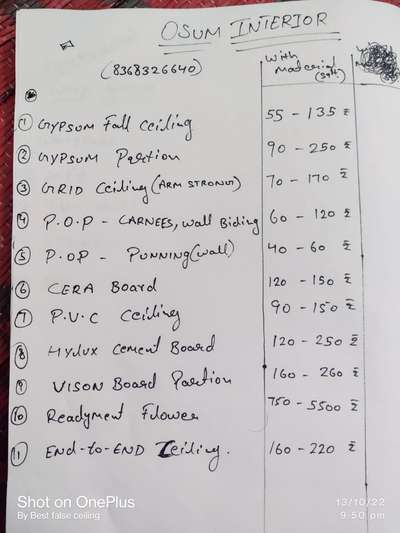 OSUM INTERIOR
(8368326640)
With Material (Sqft)
1 GYPSUM Fall Ceiling 55 - 135 ₹
2 GYPSUM Partion 90 - 250 ₹
3 GRID Ceiling (ARM STRONG) 70 - 170 ₹
4 P.O.P - CARNEES, Wall Biding 60 - 120 ₹
5 P.O.P - PUNNING (Wall) 40 - 60 ₹
6 CERA Board 120 - 150 ₹
7 P.V.C Ceiling 90 - 150 ₹
8 Hylux Cement Board 120 - 250 ₹
9 VISON Board Partion 160 - 260 ₹
10 Readyment Flower 750 - 5500 ₹
11 END-to-END Ceiling. 160 - 220 ₹
Shot on OnePlus
By Best false ceiling
13/10/22
9:50 pm